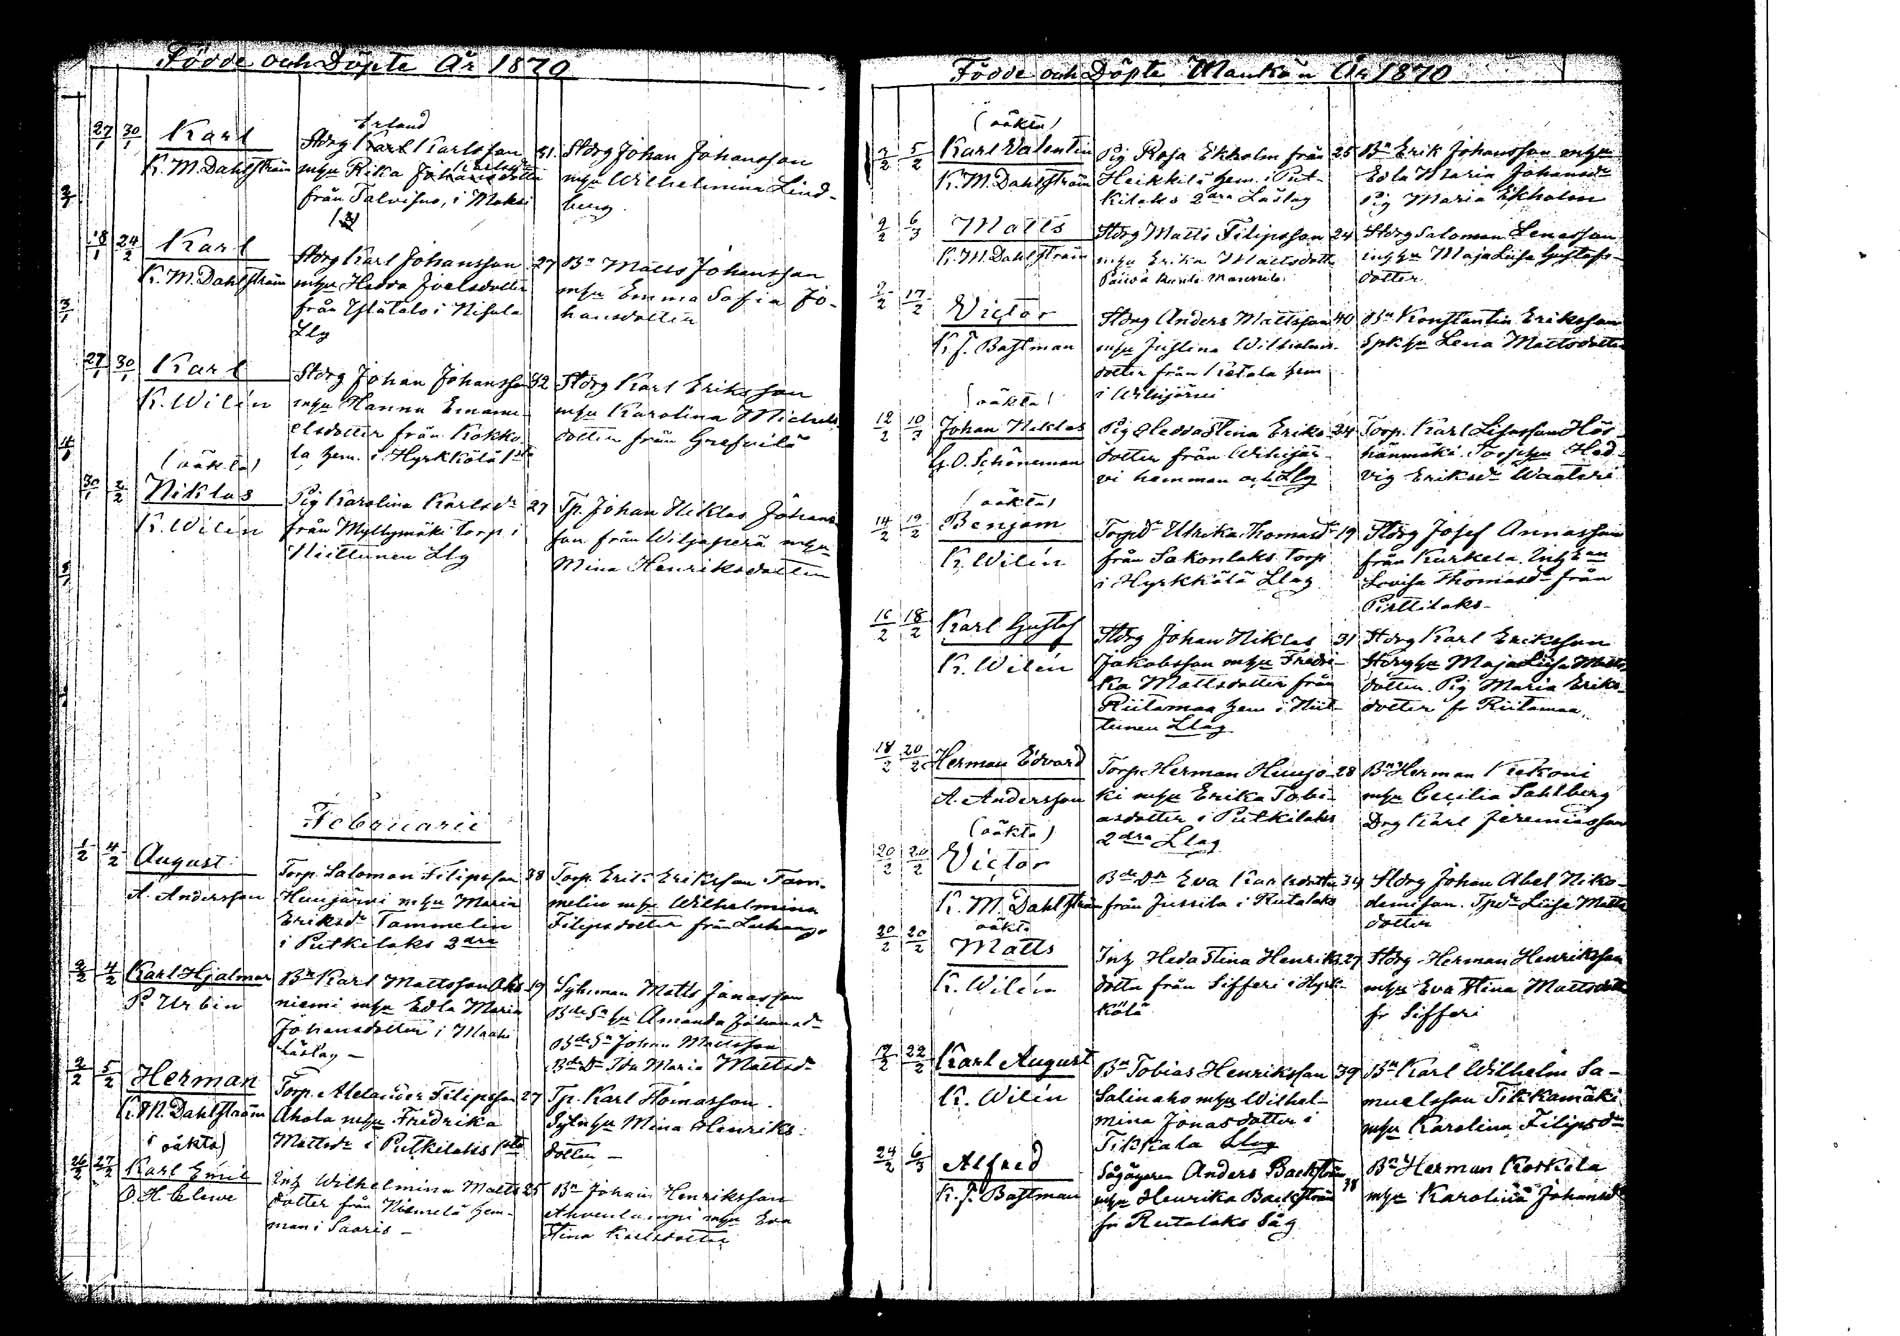 Födde och Döpte År 1870
27/1 30/1 Karl
K. M. Dahlström
Erland
Stdrg Karl Karlsson 31
mhu Rika
från Talvisuo, i Maksi
Stdrg Johan Johansson
mhu Wilhelmina Lind-
berg
18/1 24/2 Karl
K. M. Dahlström
Stdrg Karl Johansson 27
mhu Hedva Joelsdotter
från Ylätalo i Nisula
Llg
Bn Matts Johansson
mhu Emma Sofia Jo-
hansdotter
27/1 30/1 Karl
K. Wilén
Stdrg Johan Johansson 32
mhu Hanna Emanu-
elsdotter från Kokko-
la hem. i Hyrkkölä 1sta
Stdrg Karl Eriksson
mhu Karolina Michels
dotter från Grefvilä
(oäkta)
30/1 2/2 Niklas
K. Wilén
Pig Karolina Karlsdr 27
från Myllymäki torp i
Niittunen Llg
Tp. Johan Niklas Johans
son från Wiljaperä mhu
Mina Henriksdotter
Februarii
1/2 4/2 August
A. Andersson
Torp. Salomon Filipsson 38
Huujärvi mhu Maria
Eriksdr Tammelin
i Putkilaks 2dra
Torp. Erik Eriksson Tam-
melin mhu Wilhelmina
Filipsdotter från
2/2 4/2 Karl Hjalmar
P. Urbin
Bn Karl Mattsson Aho 19
niemi mhu Edla Maria
Johansdotter i
Låstag -
Sytnman Matts Jonasson
Bde Sn hu Amanda Johansdr
Bde Sn Johan Mattsson
Bde Dr Ida Maria Mattsdr
2/2 5/2 Herman
K. M. Dahlström
Torp. Alexander Filipsson 27
Ahola mhu Fredrika
Mattsdr i Putkilaks 1sta
Tp. Karl Thomasson
Sytnhu Mina Henriks
dotter -
(oäkta)
26/2 27/2 Karl Emil
O. H. Cleve
Inh Wilhelmina Matts 25
dotter från Niemelä hem-
man i Saaris -
Bn Johan Henriksson
Ahvenlampi mhu Eva
Stina Karlsdotter
Födde och Döpte Manköu År 1870
(oäkta)
2/2 5/2 Karl Valentin
K. M. Dahlström
Pig Rosa Ekholm från 25
Heikkilä hem. i Put-
kilaks 2dra Låstag
Bn Erik Johansson mhu
Edla Maria Johansdr
Pig Maria Ekholm
2/2 6/3 Matts
K. M. Dahlström
Stdrg Matts Filipsson 24
mhu Erika Mattsdotte
Stdrg Salomon Lenasson
inhhu Maja Lisa Gustafs-
dotter
2/2 17/2 Victor
K. F. Bastman
Stdrg Anders Mattsson 40
mhu Justina Wilhelms-
dotter från Ketala hem
i Wihijärvi
Bn Konstantin Eriksson
Spkhu Lena Mattsdotter
(oäkta)
12/2 10/3 Johan Niklas
G. O. Schöneman
Pig Hedda Stina Eriks- 24
dotter från Wihijär-
vi hemman och Llg
Torp. Karl Lisasson Här-
känmäki. Torphu Hed-
vig Eriksdr
(oäkta)
14/2 19/2 Benjam
K. Wilén
Torpdr Ulrika Thomasdr 19
från Sakonlaks torp
i Hyrkkölä Llag
Stdrg Josef Annasson
från Kurkela. Inhkan
Lovisa Thomasdr från
Pirttilaks-
16/2 18/2 Karl Gustaf
K. Wilén
Stdrg Johan Niklas 31
Jakobsson mhu Fredri-
ka Mattsdotter från
Riitamaa hem i Niit-
tunen Llag
Stdrg Karl Eriksson
Stdrghu Maja Lisa Matts
dotter. Pig Maria Eriks-
dotter fr Riitamaa
18/2 20/2 Herman Edvard
A. Andersson
Torp. Herman Huujo- 28
ki mhu Erika Tobi-
asdotter i Putkilaks
2dra Llag
Bn Herman Kukoni
mhu Cecilia Sahlberg
Drg Karl Jeremiasson
(oäkta)
20/2 20/2 Victor
K. M. Dahlström
Bde Dr Eva Karlsdotter 34
från Jussila i Rutalaks
Stdrg Johan Abel Niko-
demisson. Tpdr Lisa Matts
dotter
oäkta
20/2 20/2 Matts
K. Wilén
Inh Heda Stina Henriks 27
dotter från Sifferi i Hyrk-
kölä
Stdrg Herman Henriksson
mhu Eva Stina Mattsdotte
fr Sifferi
19/2 22/2 Karl August
K. Wilén
Bn Tobias Henriksson 39
Salinaho mhu Wilhel-
mina Jonasdotter i
Tikkala Llag
Bn Karl Wilhelm Sa-
muelsson Tikkamäki
mhu Karolina Filipsdr
24/2 6/3 Alfred
K. F. Bastman
Sågägaren Anders Backström 38
mhu Henrika Backström
fr Rutalaks Såg
Bn Herman Koskela
mhu Karolina Johansdr